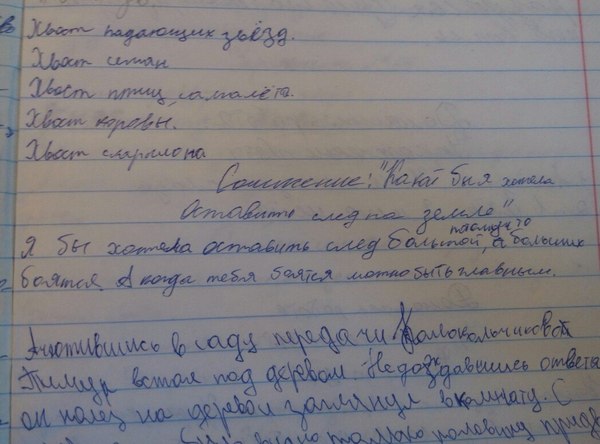 Хвост падающих звёзд.
Хвост семян
Хвост птиц, самолёта.
Хвост коровы.
Хвост скорпиона
Сочинение: "Какой бы я хотела
Оставить след на земле"
Я бы хотела оставить след большой, потому что больших
боятся. А когда тебя боятся можно быть главным.
в саду передачи Колокольчиковой
Тимур встал под деревом. Не дождавшись ответа
он полез на дерево заглянул в комнату. С
было только половина